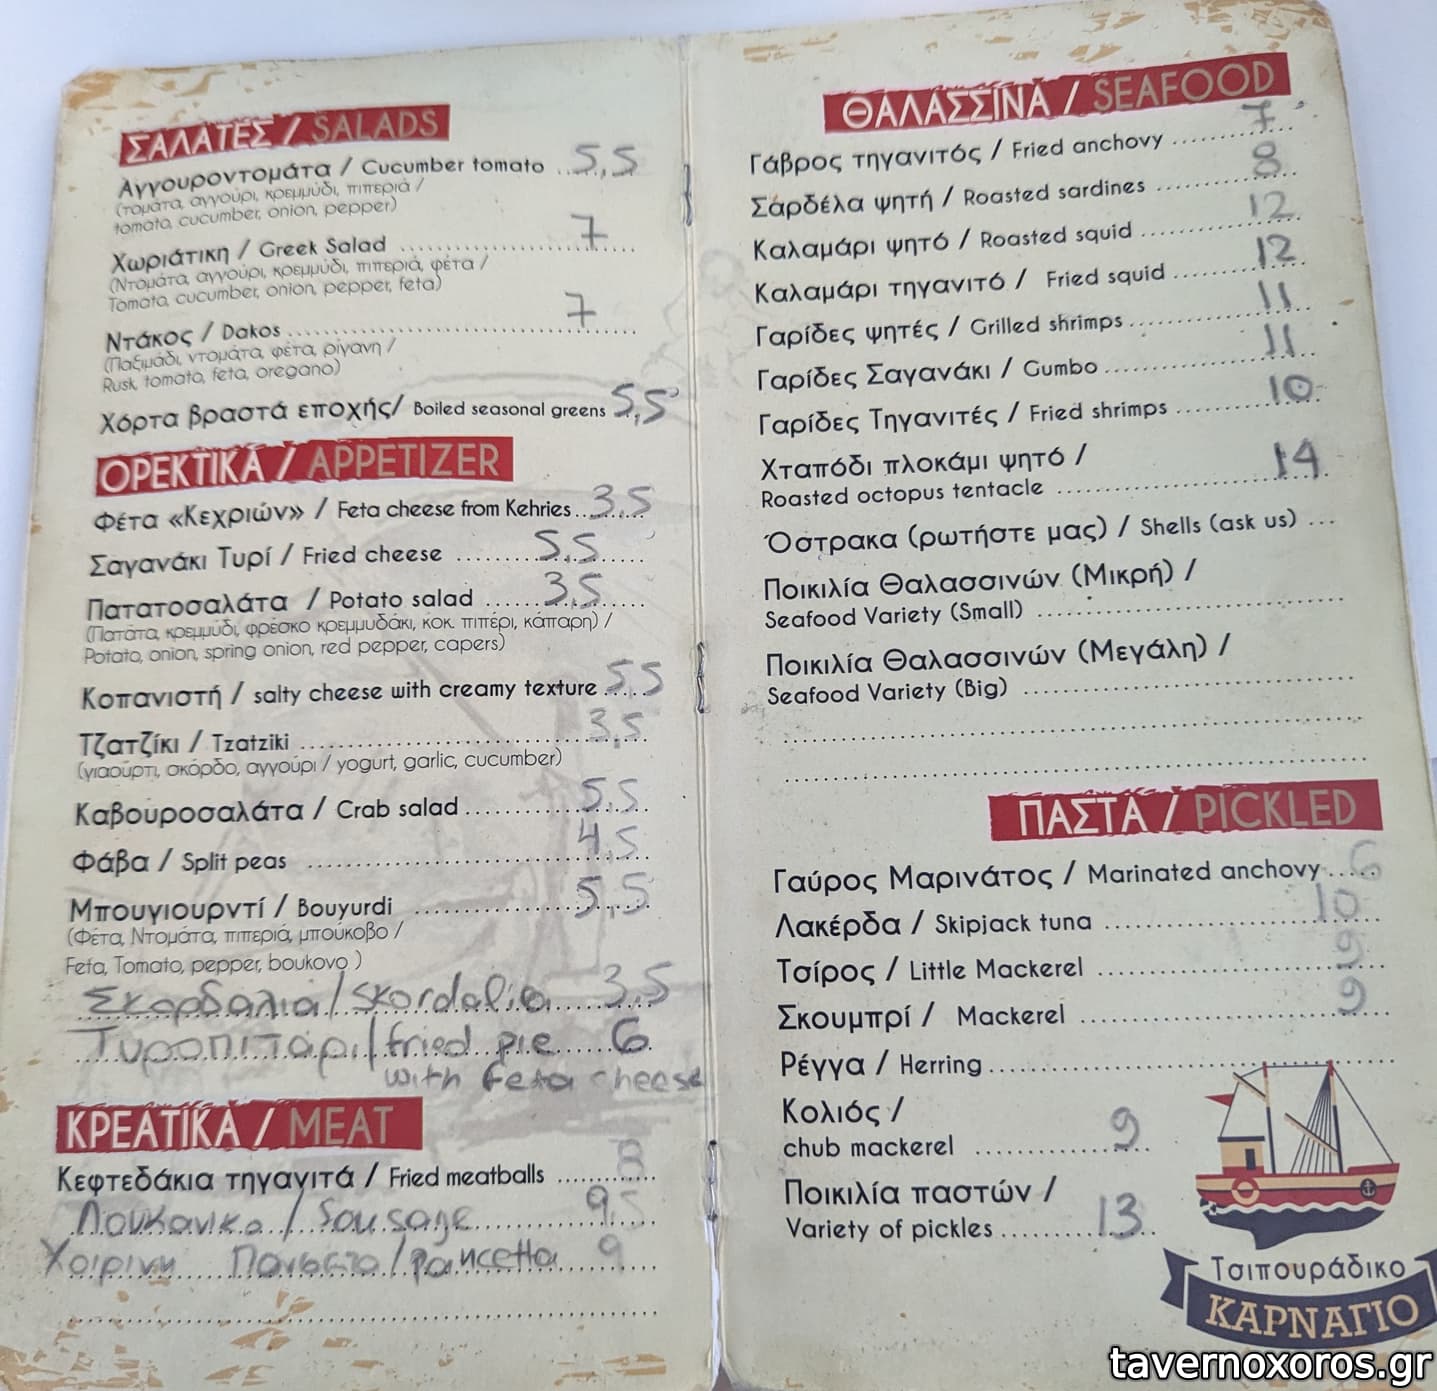 ΣΑΛΑΤΕΣ / SALADS
Αγγουροντομάτα / Cucumber tomato .. 5,5
(τομάτα, αγγούρι, κρεμμύδι, πιπεριά /
tomato, cucumber, onion, pepper)
Χωριάτικη / Greek Salad ........ 7
(Ντομάτα, αγγούρι, κρεμμύδι, πιπεριά, φέτα /
Tomato, cucumber, onion, pepper, feta)
Ντάκος / Dakos ........ 7
(Παξιμάδι, ντομάτα, φέτα, ρίγανη /
Rusk, tomato, feta, oregano)
Χόρτα βραστά εποχής/ Boiled seasonal greens 5,5
ΟΡΕΚΤΙΚΑ / APPETIZER
Φέτα «Κεχριών» / Feta cheese from Kehries ... 3,5
Σαγανάκι Τυρί / Fried cheese ........ 5,5
Πατατοσαλάτα / Potato salad ........ 3,5
(Πατάτα, κρεμμύδι, φρέσκο κρεμμυδάκι, κοκ. πιπέρι, κάπαρη) /
Potato, onion, spring onion, red pepper, capers)
Κοπανιστή / salty cheese with creamy texture ..... 5,5
Τζατζίκι / Tzatziki ........ 3,5
(γιαούρτι, σκόρδο, αγγούρι / yogurt, garlic, cucumber)
Καβουροσαλάτα / Crab salad ........ 5,5
Φάβα / Split peas ........ 4,5
Μπουγιουρντί / Bouyurdi ........ 5,5
(Φέτα, Ντομάτα, πιπεριά, μπούκοβο /
Feta, Tomato, pepper, boukovo )
Σκορδαλιά / skordalia 3,5
Τυροπιτάρι / fried pie 6
with feta cheese
ΚΡΕΑΤΙΚΑ / MEAT
Κεφτεδάκια τηγανιτά / Fried meatballs ........ 8
Λουκανικο / Sousage 9,5
Χοιρινη Πανσετα / pancetta 9
ΘΑΛΑΣΣΙΝΑ / SEAFOOD
Γάβρος τηγανιτός / Fried anchovy ........ 7
Σαρδέλα ψητή / Roasted sardines ........ 8
Καλαμάρι ψητό / Roasted squid ........ 12
Καλαμάρι τηγανιτό / Fried squid ........ 12
Γαρίδες ψητές / Grilled shrimps ........ 11
Γαρίδες Σαγανάκι / Gumbo ........ 11
Γαρίδες Τηγανιτές / Fried shrimps ........ 10
Χταπόδι πλοκάμι ψητό /
Roasted octopus tentacle ........ 14
Όστρακα (ρωτήστε μας) / Shells (ask us) ...
Ποικιλία Θαλασσινών (Μικρή) /
Seafood Variety (Small) ........
Ποικιλία Θαλασσινών (Μεγάλη) /
Seafood Variety (Big) ........
ΠΑΣΤΑ / PICKLED
Γαύρος Μαρινάτος / Marinated anchovy ..... 6
Λακέρδα / Skipjack tuna ........ 10
Τσίρος / Little Mackerel ........ 9
Σκουμπρί / Mackerel ........ 9
Ρέγγα / Herring ........
Κολιός /
chub mackerel ........ 9
Ποικιλία παστών /
Variety of pickles ........ 13
Τσιπουράδικο
ΚΑΡΝΑΓΙΟ
tavernoxoros.gr